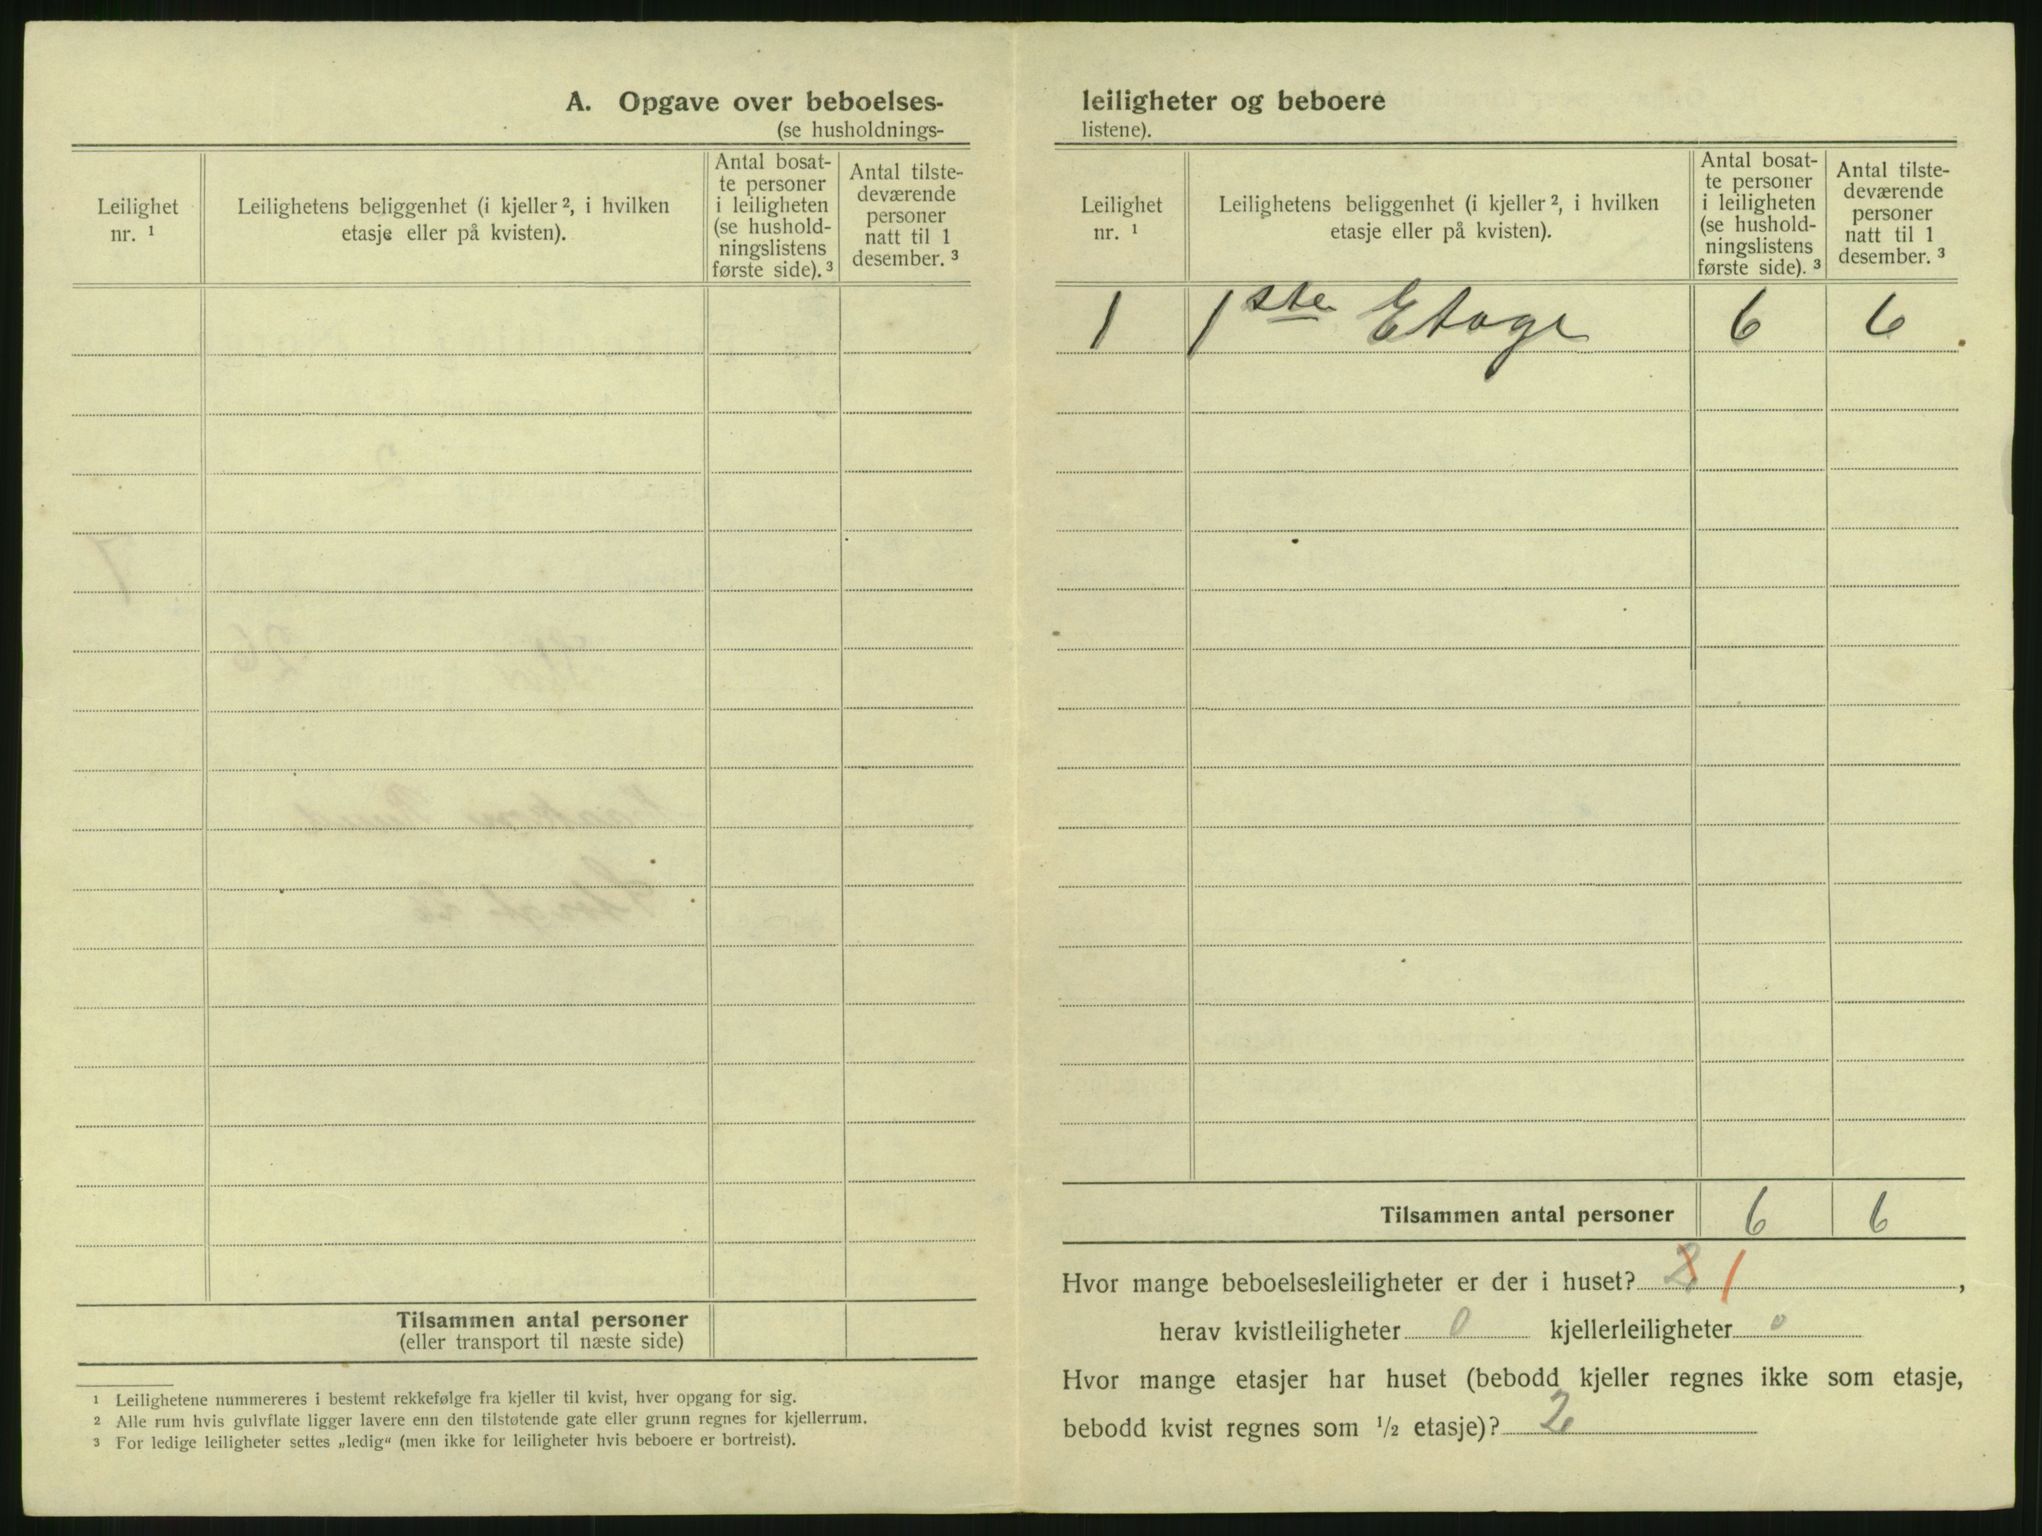 A. Opgave over beboelses-
(se husholdnings-
Leilighet
nr. ¹
Leilighetens beliggenhet (i kjeller ², i hvilken
etasje eller på kvisten).
Antal bosat-
te personer
i leiligheten
(se hushold-
ningslistens
første side). ³
Antal tilste-
deværende
personer
natt til 1
desember. ³
Tilsammen antal personer
(eller transport til næste side)
¹ Leilighetene nummereres i bestemt rekkefølge fra kjeller til kvist, hver opgang for sig.
² Alle rum hvis gulvflate ligger lavere enn den tilstøtende gate eller grunn regnes for kjellerrum.
³ For ledige leiligheter settes „ledig“ (men ikke for leiligheter hvis beboere er bortreist).
leiligheter og beboere
listene).
Leilighet
nr. ¹
Leilighetens beliggenhet (i kjeller ², i hvilken
etasje eller på kvisten).
Antal bosat-
te personer
i leiligheten
(se hushold-
ningslistens
første side). ³
Antal tilste-
deværende
personer
natt til 1
desember. ³
1 1ste Etage 6 6
Tilsammen antal personer 6 6
Hvor mange beboelsesleiligheter er der i huset? 2 1 ,
herav kvistleiligheter 0 kjellerleiligheter 0
Hvor mange etasjer har huset (bebodd kjeller regnes ikke som etasje,
bebodd kvist regnes som ½ etasje)? 2